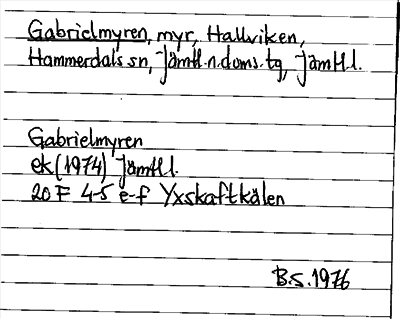 Gabrielmyren, myr, Hallviken,
Hammerdals sn, Jämtl.n.doms.tg, Jämtl.l.
Gabrielmyren
ek (1974) Jämtl.l.
20 F 4-5 e-f Yxskaftkälen
B.S. 1976